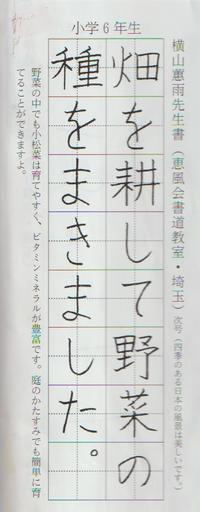 小学6年生
横山惠雨先生書（恵風会書道教室・埼玉）次号（四季のある日本の風景は美しいです。）
畑を耕して野菜の
種をまきました。
野菜の中でも小松菜は育てやすく、ビタミンミネラルが豊富です。庭のかたすみでも簡単に育
てることができますよ。